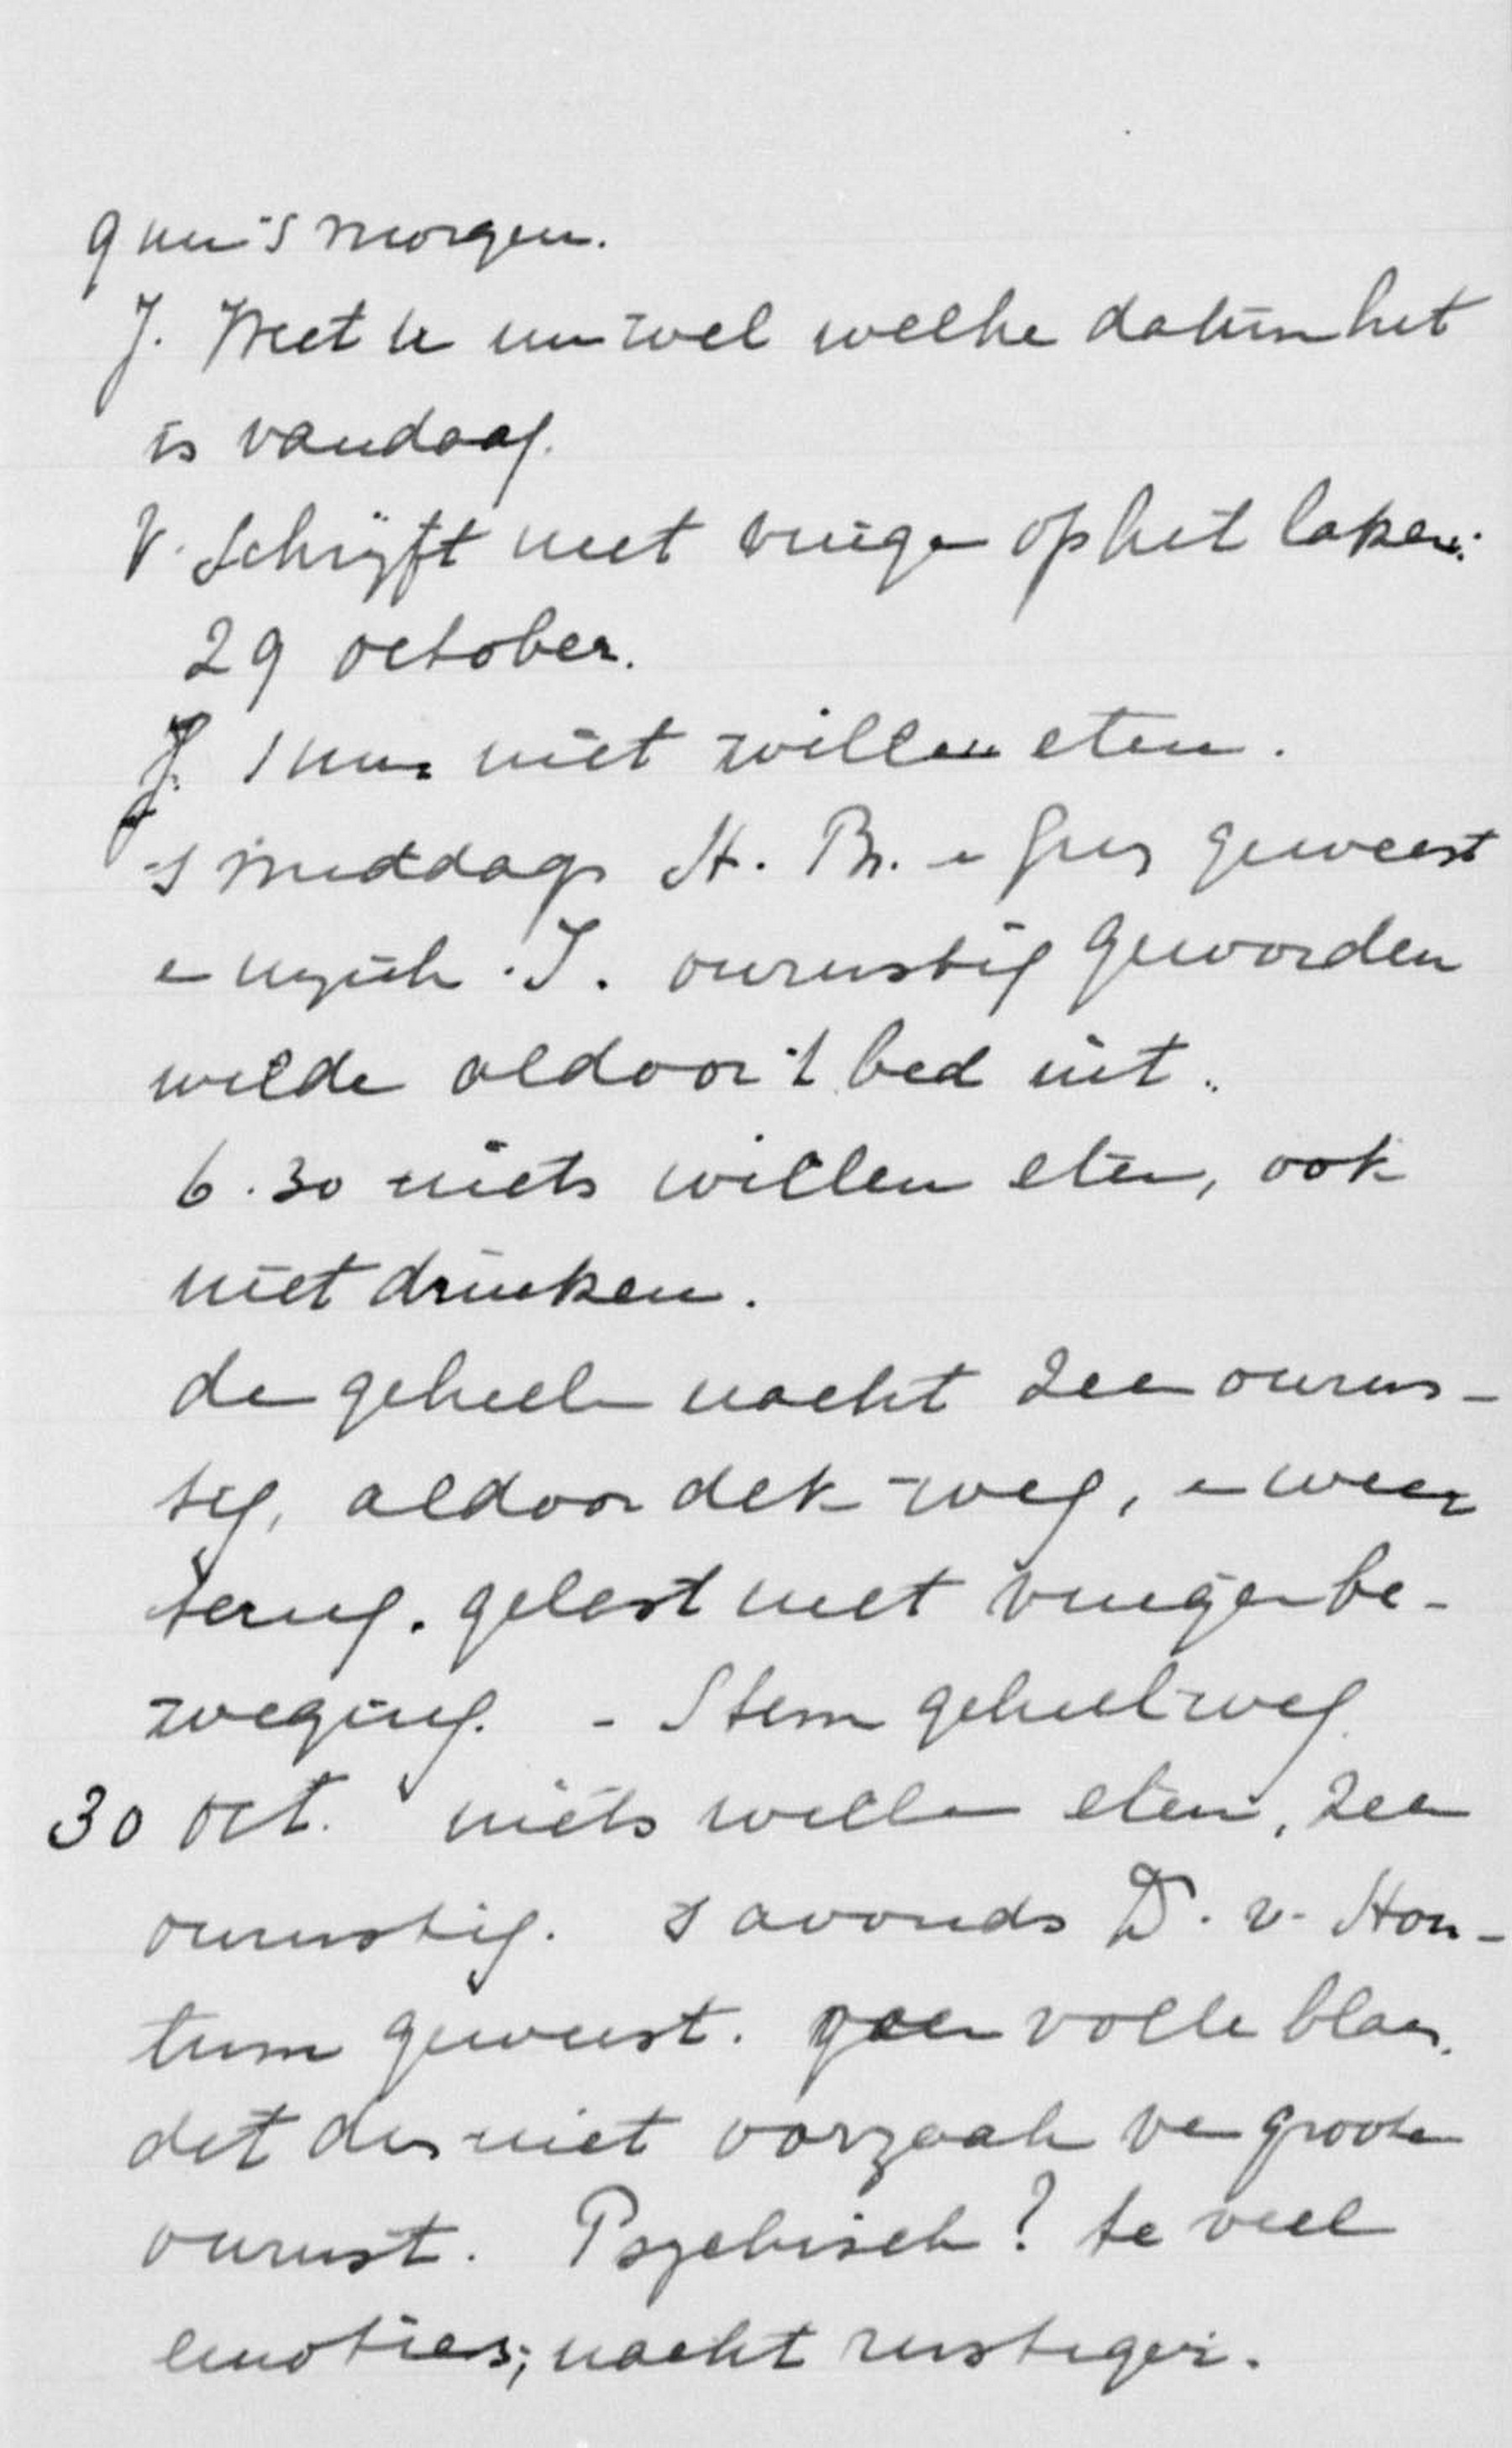 9 uur 's morgen.
J. Weet U nu wel welke datum het
is vandaag.
V. Schrijft met vinger op het laken:
29 october.
J. 1 uur niet willen eten.
's middags H. Br. en Gus geweest
en J. onrustig geworden
wilde aldoor 't bed uit.
6.30 niets willen eten, ook
niet drinken.
de geheele nacht zeer onrus-
tig, aldoor dek weg, en weer
terug. gelast met vingerbe-
weging. - Stem geheel weg.
30 Oct. niets willen eten, zeer
onrustig. 's avonds Dr. v. Hon-
tum geweest. geen volle blaas.
dit dus niet oorzaak van groote
onrust. Psychisch? te veel
emoties; nacht rustiger.